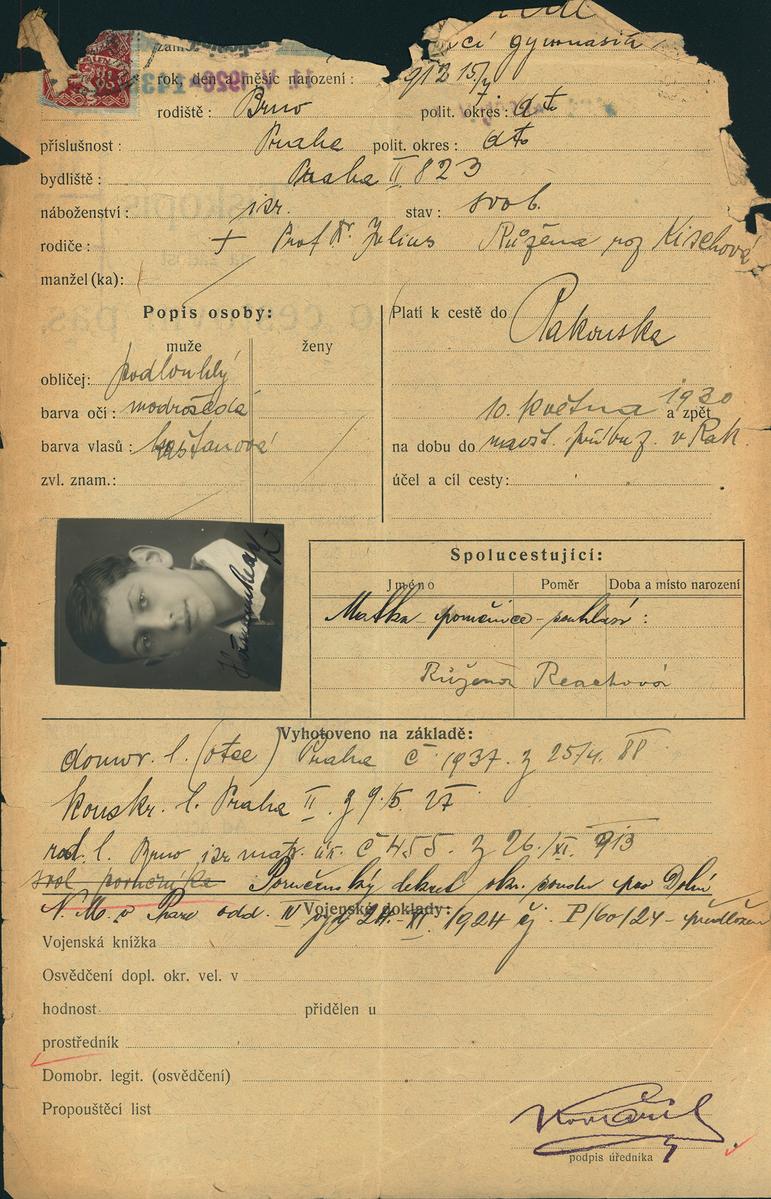 gymnasia
rok, den a měsíc narození: 913 15/
rodiště: Brno polit. okres: dto
příslušnost: Praha polit. okres: dto
bydliště: Praha II 823
náboženství: izr. stav: svob.
rodiče: + Prof Dr. Julius Růžena roz Kischová
manžel(ka):
Popis osoby:
muže ženy
obličej: podlouhlý
barva očí: modrošedá
barva vlasů: kaštanová
zvl. znam.:
Platí k cestě do Rakouska
10. května 1930 a zpět
na dobu do navšt. příbuz. v Rak.
účel a cíl cesty:
Spolucestující:
Jméno Poměr Doba a místo narození
Matka poručnice - souhlasí:
Růžena Reachová
Vyhotoveno na základě:
domov. l. (otce) Praha č. 1937. z 25/4. 88
konskr. l. Praha II. z 9./5. 27
rod. l. Brno izr. mat. úř. č 455. z 26./XI. 913
Poručenský dekret okr. soudu pro Dolní
N. M. v Praze odd. IV 24. XI. 1924 čj. P/60/24 - předložen
Vojenské doklady:
Vojenská knížka
Osvědčení dopl. okr. vel. v
hodnost přidělen u
prostředník
Domobr. legit. (osvědčení)
Propouštěcí list
podpis úředníka